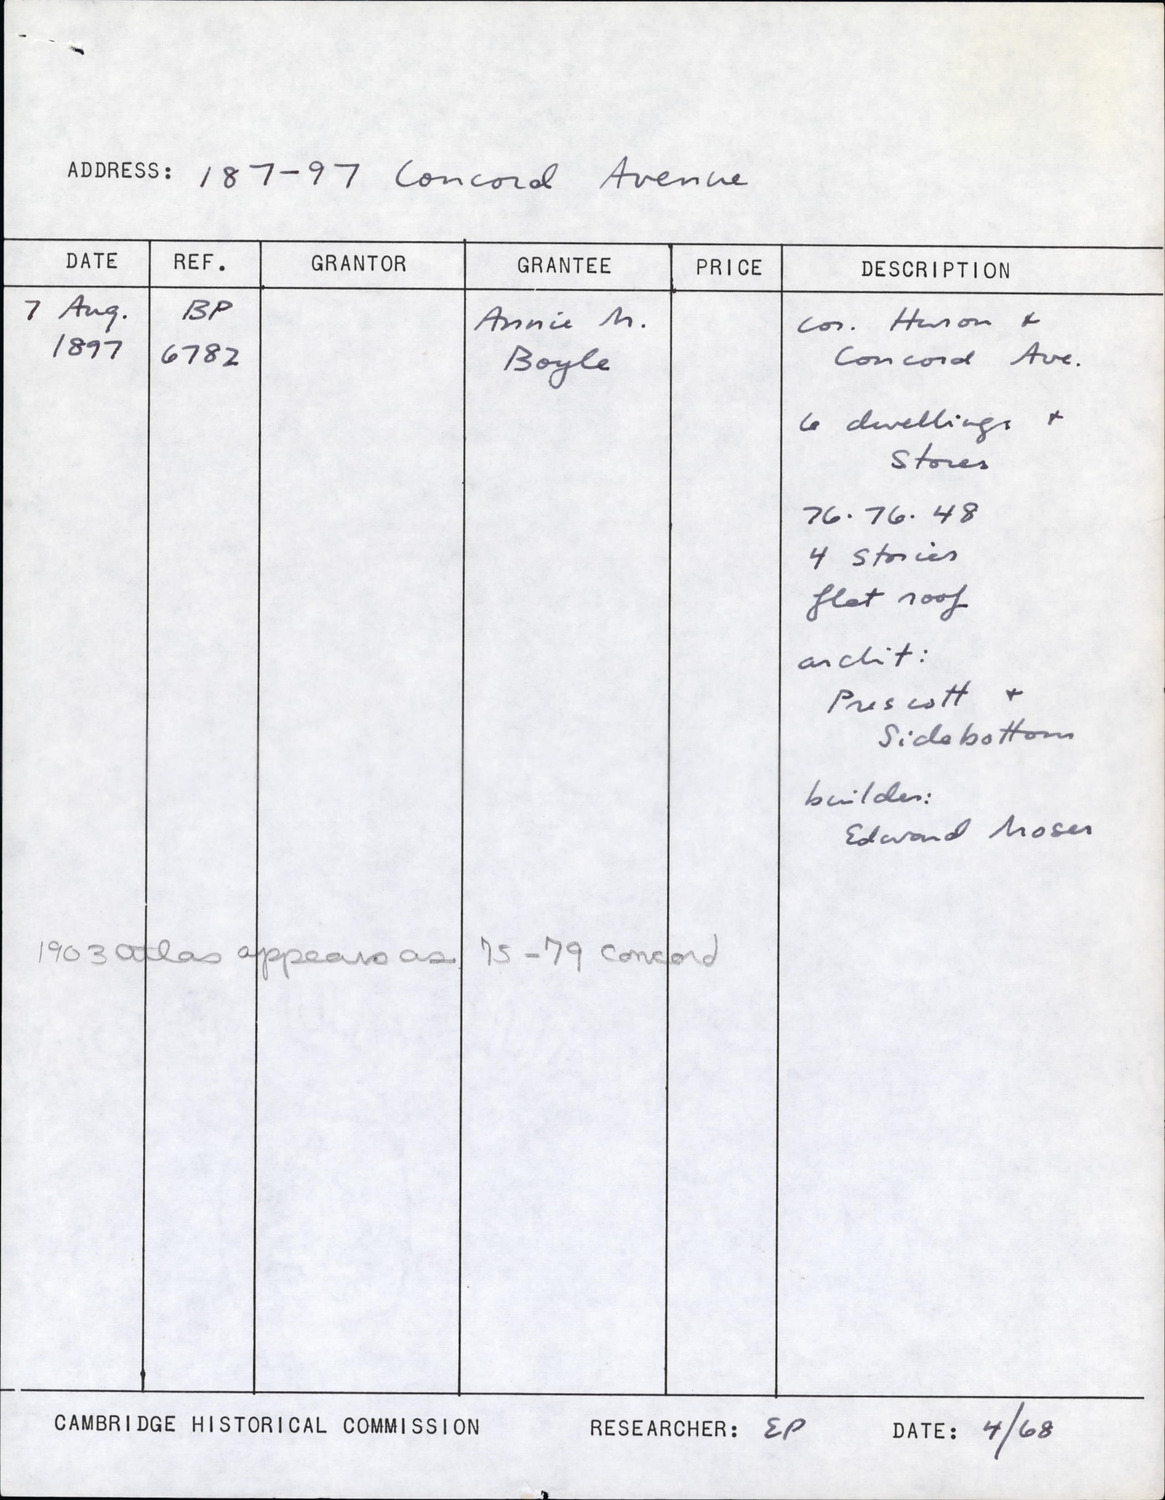 ADDRESS: 187-97 Concord Avenue
DATE REF. GRANTOR GRANTEE PRICE DESCRIPTION
7 Aug.
1897
BP
6782
Annie M.
Boyle
cor. Huron +
Concord Ave.
6 dwellings +
Stores
76. 76. 48
4 stories
flat roof
archit:
Prescott +
Sidebottom
builder:
Edward Moser
1903 atlas appears as 75-79 Concord
CAMBRIDGE HISTORICAL COMMISSION RESEARCHER: EP DATE: 4/68